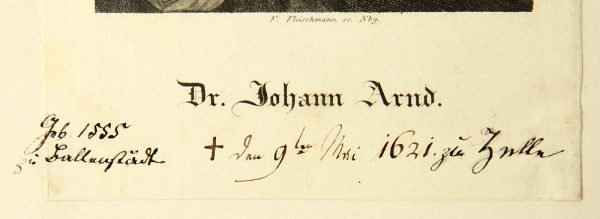 F. Fleischmann sc. Nbg.
Dr. Johann Arnd.
Geb. 1555
zu Ballenstädt
† den 9ten Mai 1621. zu Zelle